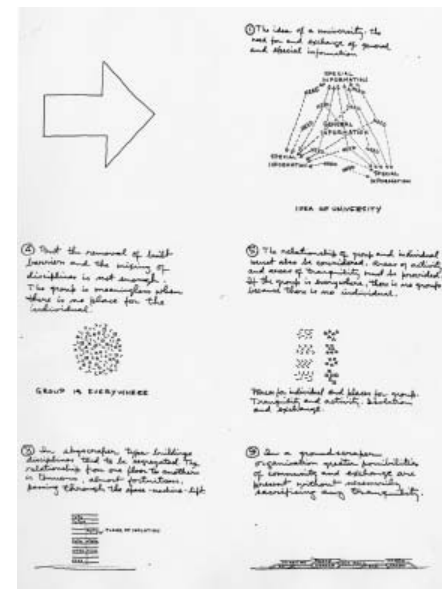 ① The idea of a university: the
need for and exchange of general
and special information
SPECIAL
INFORMATION
NEED
NEED
NEED
NEED
GENERAL
INFORMATION
NEED
NEED
SPECIAL
INFORMATION
NEED
SPECIAL
INFORMATION
IDEA OF UNIVERSITY
④ But the removal of built
barriers and the mixing of
disciplines is not enough.
The group is meaningless when
there is no place for the
individual.
GROUP IS EVERYWHERE
⑤ The relationship of group and individual
must also be considered. Areas of activity
and areas of tranquility must be provided.
If the group is everywhere, there is no group
because there is no individual.
Places for individual and places for group.
Tranquility and activity. Isolation
and exchange.
In skyscraper type buildings
disciplines tend to be segregated. The
relationship from one floor to another
is tenuous, almost fortuitous,
passing through the space-machine-lift.
PLACE OF ISOLATION
In a groundscraper
organisation greater possibilities
of community and exchange are
present without necessarily
sacrificing any tranquility.